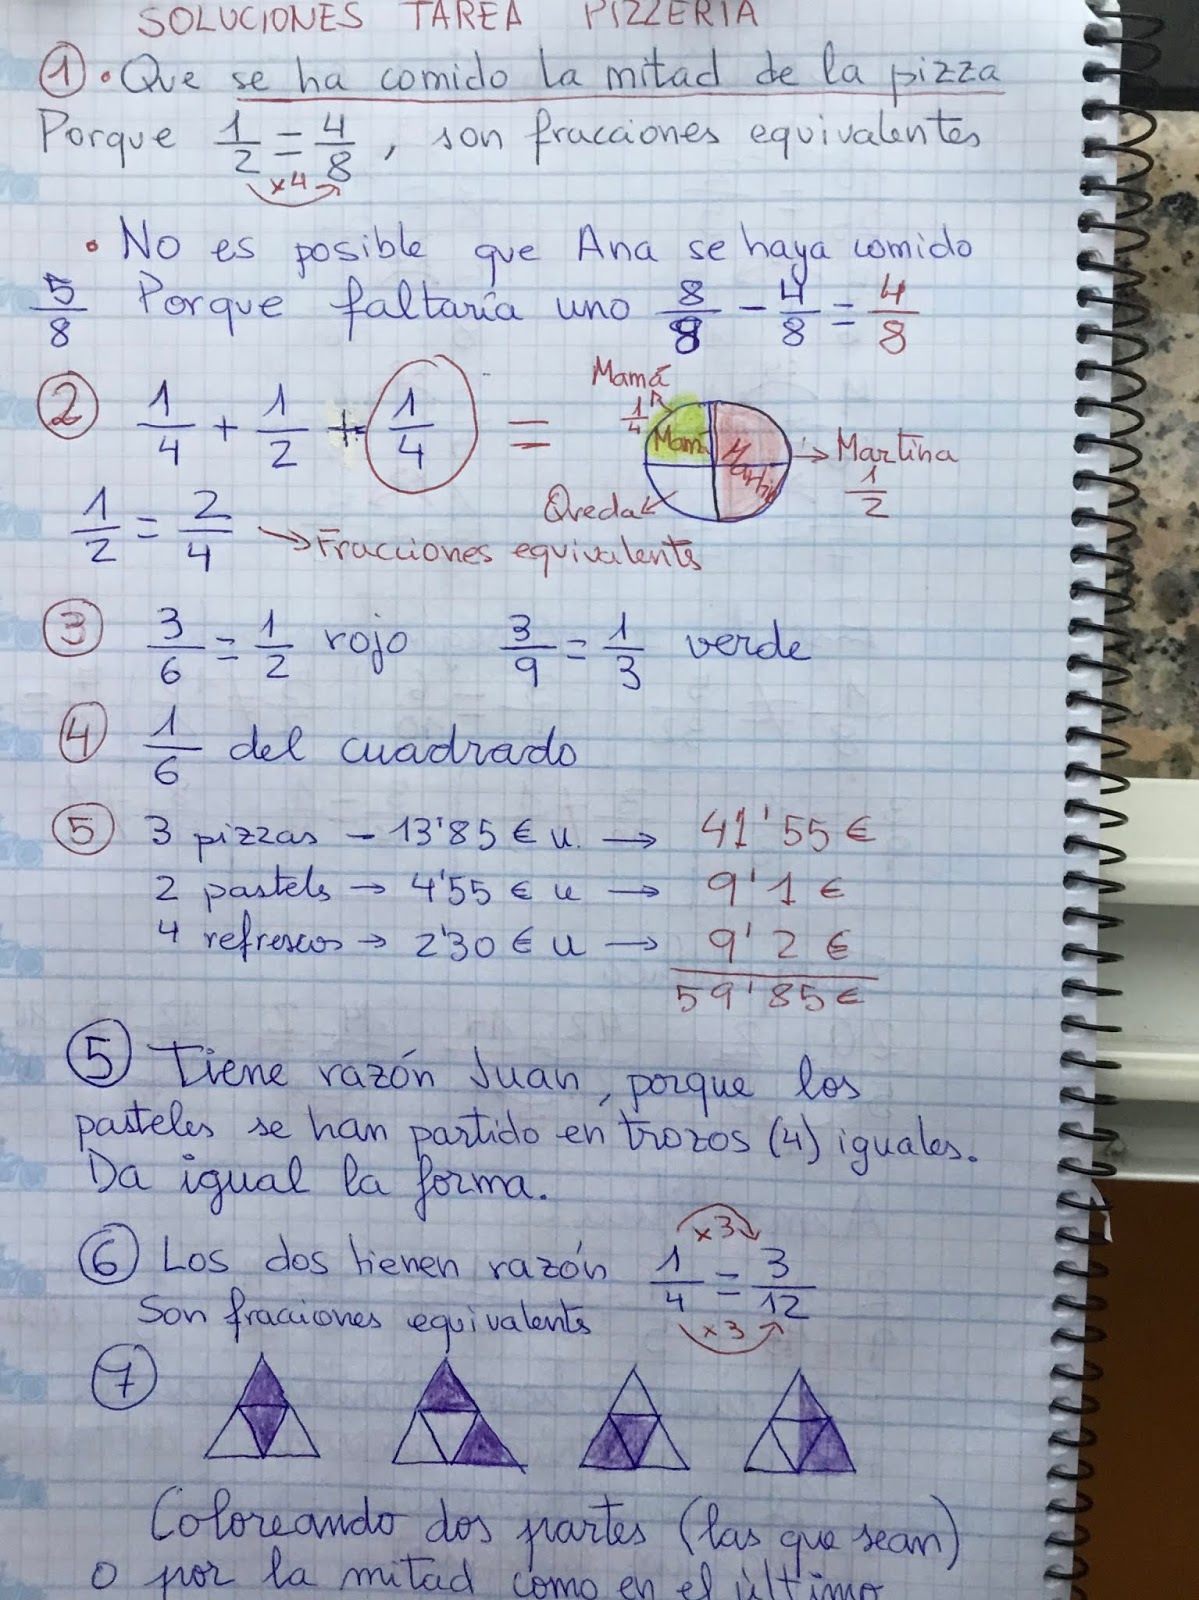 SOLUCIONES TAREA PIZZERIA
① • Que se ha comido la mitad de la pizza
Porque 1/2 = 4/8, son fracciones equivalentes
x4
• No es posible que Ana se haya comido
5/8 Porque faltaría uno 8/8 - 4/8 = 4/8
② 1/4 + 1/2 + 1/4 =
Mamá 1/4
Mamá
Martin
→ Martina 1/2
Queda
1/2 = 2/4 → Fracciones equivalents
③ 3/6 = 1/2 rojo 3/9 = 1/3 verde
④ 1/6 del cuadrado
⑤ 3 pizzas - 13'85 € u. → 41'55 €
2 pastels → 4'55 € u → 9'1 €
4 refrescos → 2'30 € u → 9'2 €
59'85 €
⑤ Tiene razón Juan, porque los
pasteles se han partido en trozos (4) iguales.
Da igual la forma.
⑥ Los dos tienen razón 1/4 = 3/12
x3
Son fracciones equivalents
x3
⑦
Coloreando dos partes (las que sean)
o por la mitad como en el último